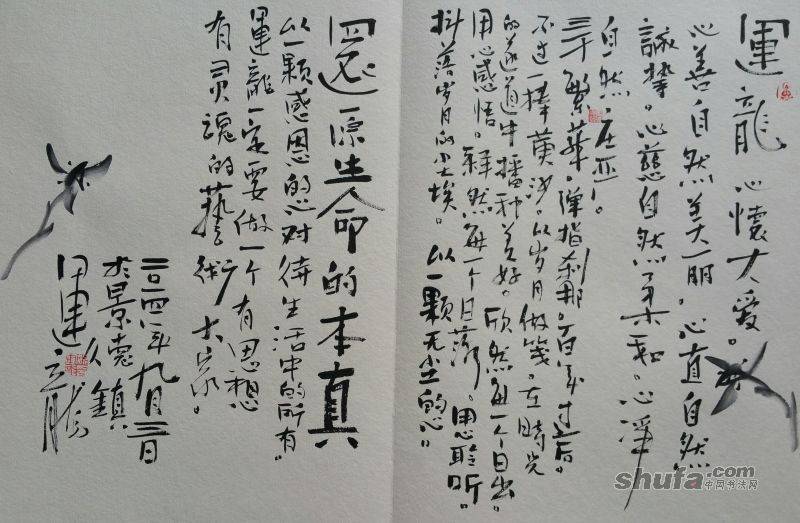 運龍心懷大爱。
心善自然美丽。心直自然
誠挚。心慈自然柔和。心净
自然庄亚！
三千繁華。彈指刹那。百年过后。
不过一捧黄沙。以岁月做笺。在時光
的隧道中播种美好。欣然每一个日出。
用心感悟。释然每一个日落。用心聆听。
抖落岁月的尘埃。以一颗无尘的心。
還原生命的本真
以一颗感恩的心对待生活中的所有。
運龍一定要做一个有思想
有灵魂的藝術大家。
二〇一四年九月三日
於景德鎮
運龍
shufa.com
中国书法网